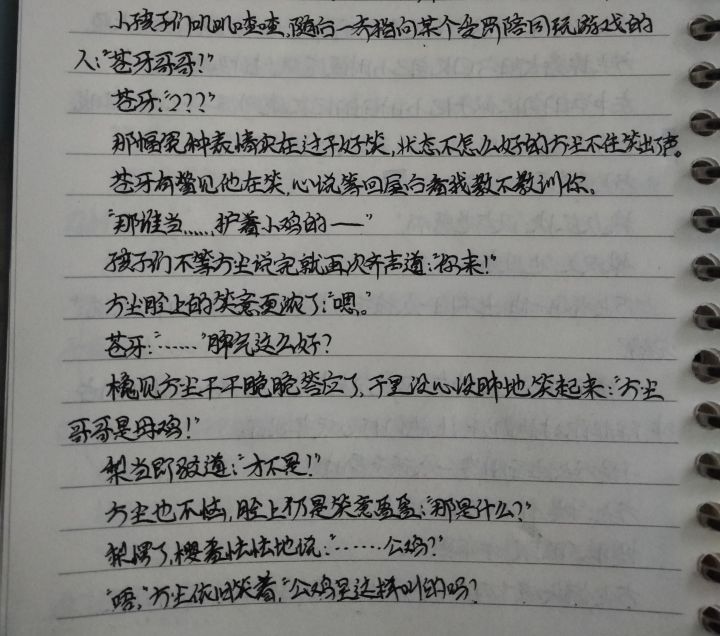 小孩子们叽叽喳喳,随后一齐指向某个受罚陪同玩游戏的
人:“苍牙哥哥!”
苍牙:“???”
那幅表情实在过于好笑,状态不怎么好的方尘不住笑出了声。
苍牙有瞥见他在笑,心说等回屋白看我教不教训你。
“那谁当……护着小鸡的——”
孩子们不等方尘说完就再次齐声道:“你来!”
方尘脸上的笑意更浓了:“嗯。”
苍牙:“……”脾气这么好?
槐见方尘干干脆脆答应了,于是没心没肺地笑起来:“方尘
哥哥是母鸡!”
梨当即驳道:“才不是!”
方尘也不恼,脸上仍是笑意盈盈:“那是什么?”
梨愣了,樱看怯怯地说:“……公鸡?”
“唔,”方尘依旧笑着,“公鸡是这样叫的吗?